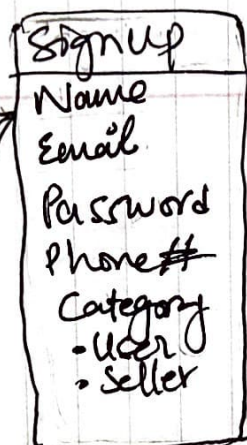 Signup
Name
Email
Password
Phone #
Category
• User
• Seller